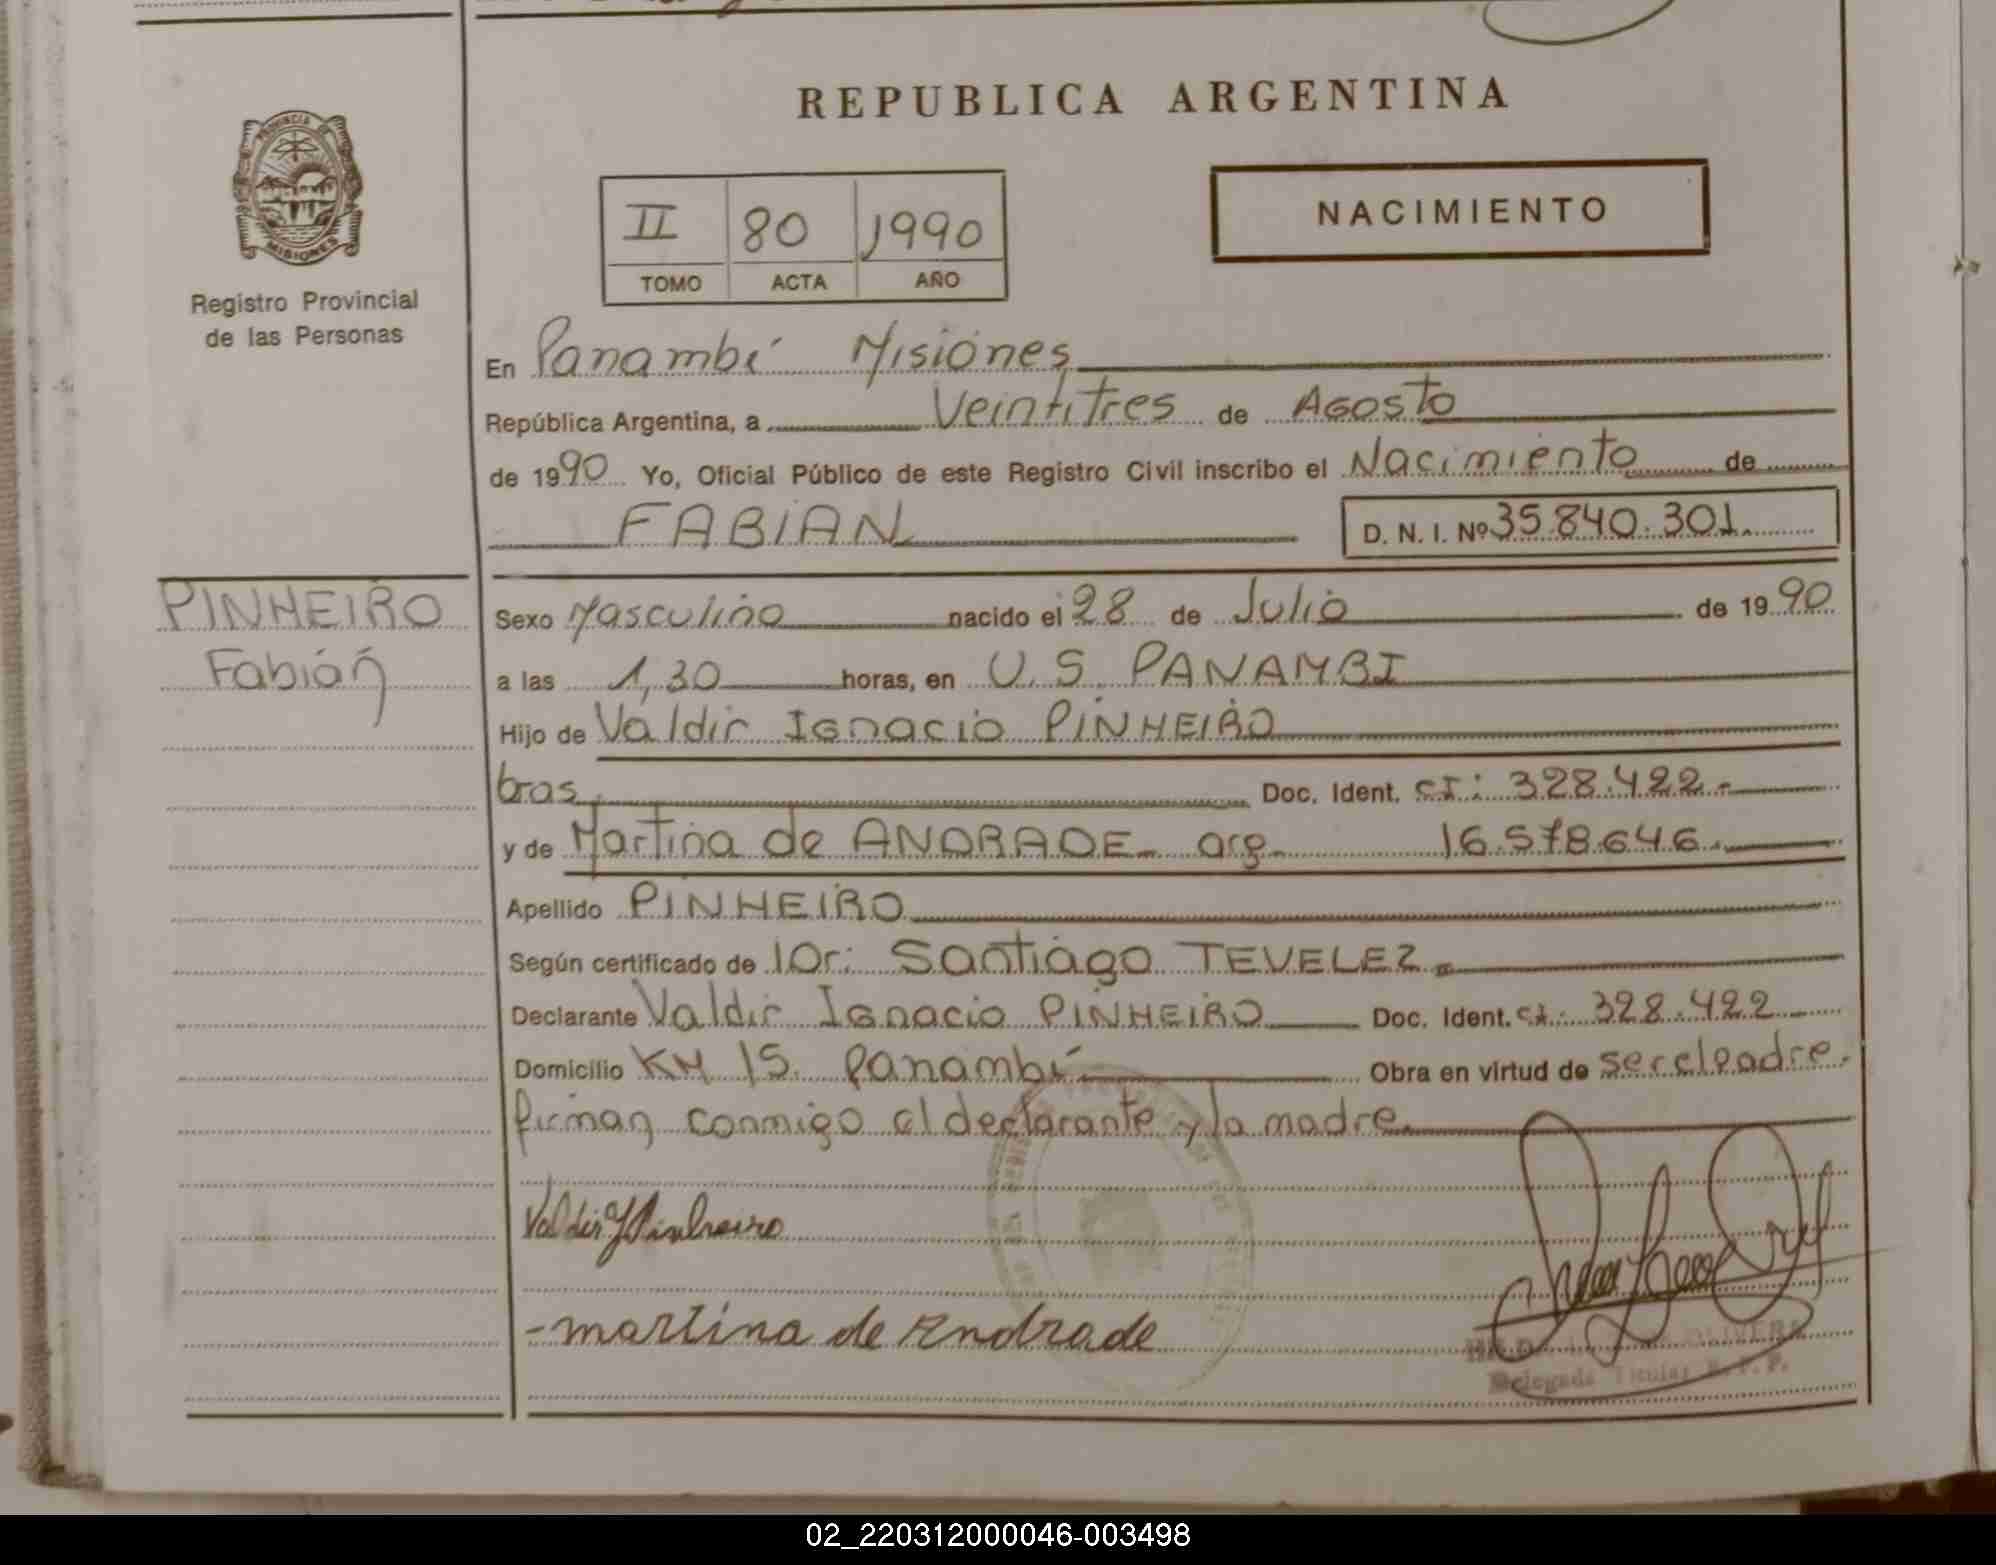 REPUBLICA ARGENTINA
PROVINCIA DE
MISIONES
Registro Provincial
de las Personas
II 80 1990
TOMO ACTA AÑO
NACIMIENTO
En Panambí Misiones
República Argentina, a Veintitres de Agosto
de 1990 Yo, Oficial Público de este Registro Civil inscribo el Nacimiento de
FABIAN D. N. I. Nº 35.840.301.
PINHEIRO
Fabián
Sexo Masculino nacido el 28 de Julio de 1990
a las 1,30 horas, en U.S. PANAMBI
Hijo de Valdir Ignacio PINHEIRO
bras. Doc. Ident. CI: 328.422-
y de Martina de ANDRADE - arg. 16.578.646.
Apellido PINHEIRO
Según certificado de Dr: Santiago TEVELEZ.
Declarante Valdir Ignacio PINHEIRO Doc. Ident. CI: 328.422
Domicilio KM 15. Panambí Obra en virtud de ser el padre.
firman conmigo el declarante y la madre.
Valdir I Pinheiro
-martina de Andrade
OLIVERA
Delegada Titular R.P.P.
02_220312000046-003498